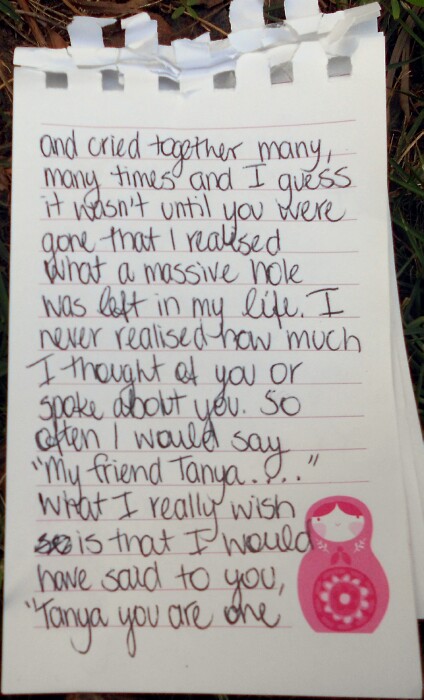 and cried together many,
many times and I guess
it wasn't until you were
gone that I realised
what a massive hole
was left in my life. I
never realised how much
I thought of you or
spoke about you. So
often I would say
"My friend Tanya...."
What I really wish
so is that I would
have said to you,
"Tanya you are one